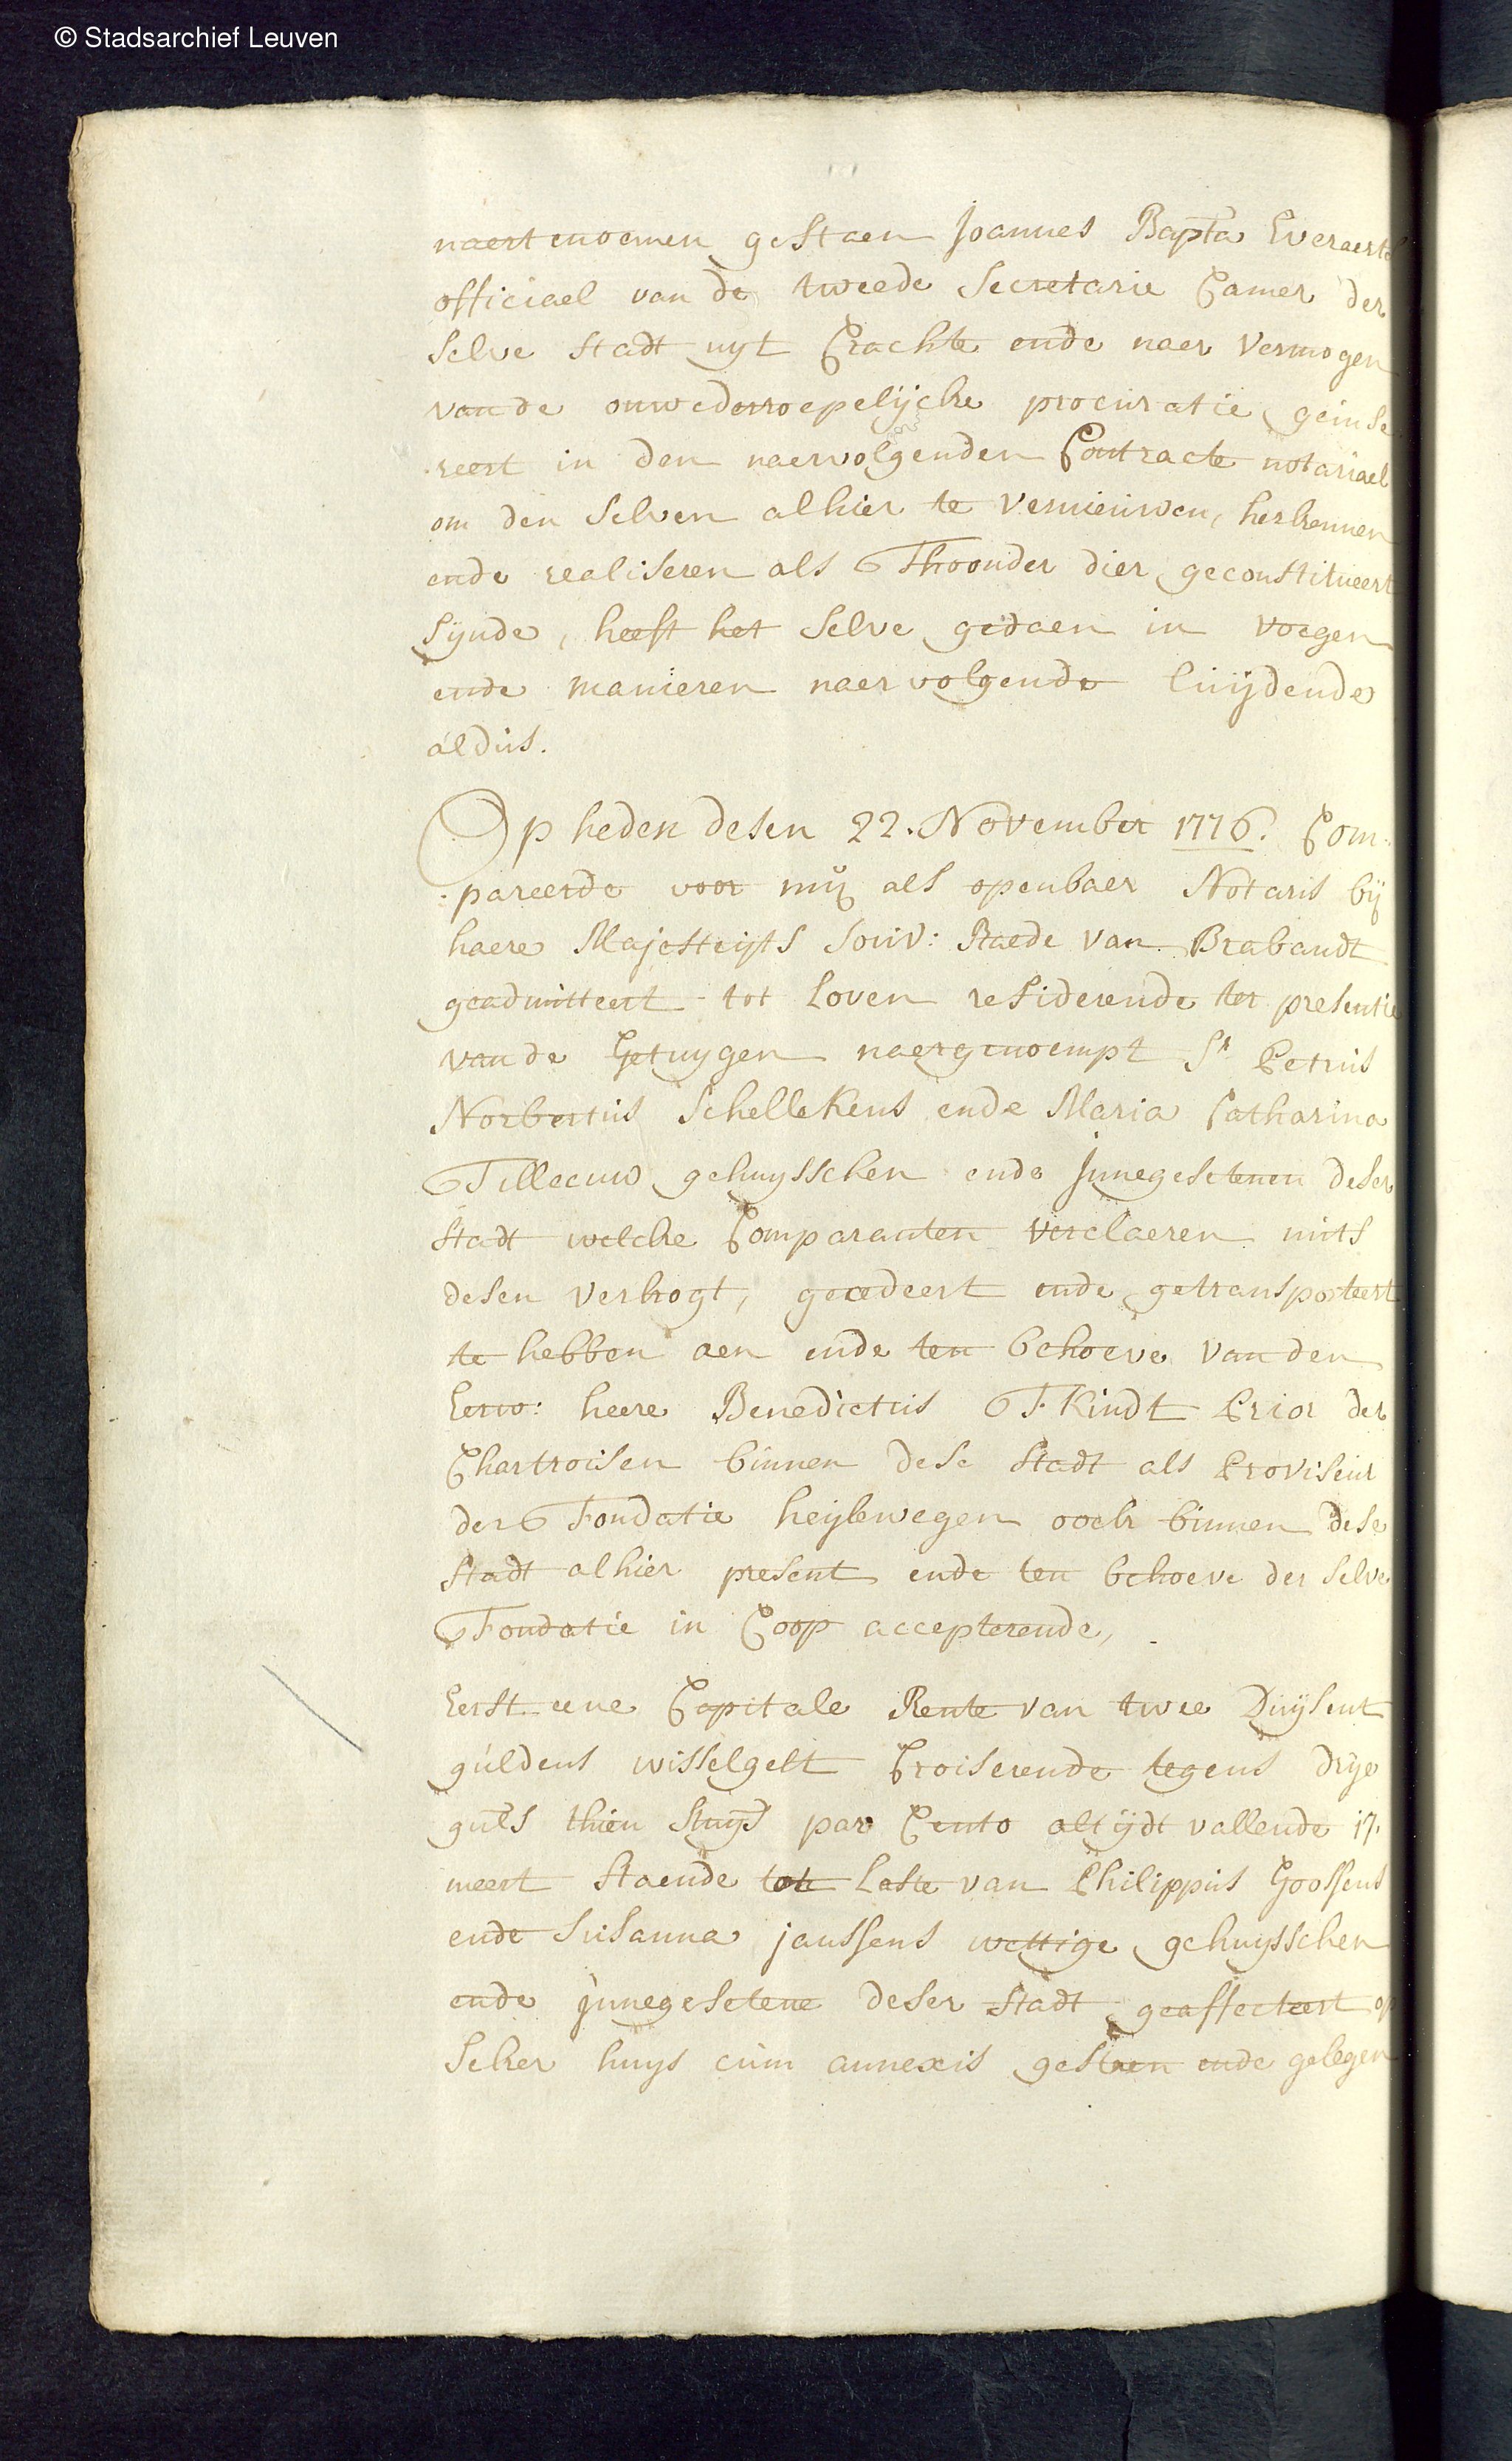 © Stadsarchief Leuven
naertenoemen gestaen Joannes Bapta Everaerts
officiael van de tweede Secretarie Camer der
selve stadt uyt Crachte ende naer vermogen
vande onwederroepelijcke procuratie geinse
:reert in den naervolgenden Contracte notariael
om den selven alhier te vernieuwen, herkennen
ende realiseren als Thoonder dier geconstitueert
sijnde, heeft het selve gedaen in voegen
ende manieren naervolgende luijdende
aldus.
Op heden desen 22. November 1776. Com:
:pareerde voor mij als openbaer Notaris bij
haere Majesteijts souv: Raede van Brabandt
geadmitteert tot Loven residerende ter presentie
vande Getuygen naergenoempt Sr Petrus
Norbertus Schellekens ende Maria Catharina
Tilleeuw gehuysschen ende Innegesetenen deser
stadt welcke Comparanten verclaeren mits
desen verkogt, gecedeert ende getransporteert
te hebben aen ende ten behoeve vanden
Eerw: heere Benedictus T'Kindt Prior der
Chartroisen binnen dese stadt als Proviseur
der Fondatie heylewegen oock binnen dese
stadt alhier present ende ten behoeve der selve
Fondatie in Coop accepterende,
Eerst eene Capitale Rente van twee Duijsent
guldens wisselgelt Croiserende tegens drije
guls thien stuys par Cento altijdt vallende 17.
meert staende tot Laste van Philippus Goossens
ende Susanna janssens wettige gehuysschen
ende jnnegesetene deser stadt geaffecteert op
seker huys cum annexis gestaen ende gelegen